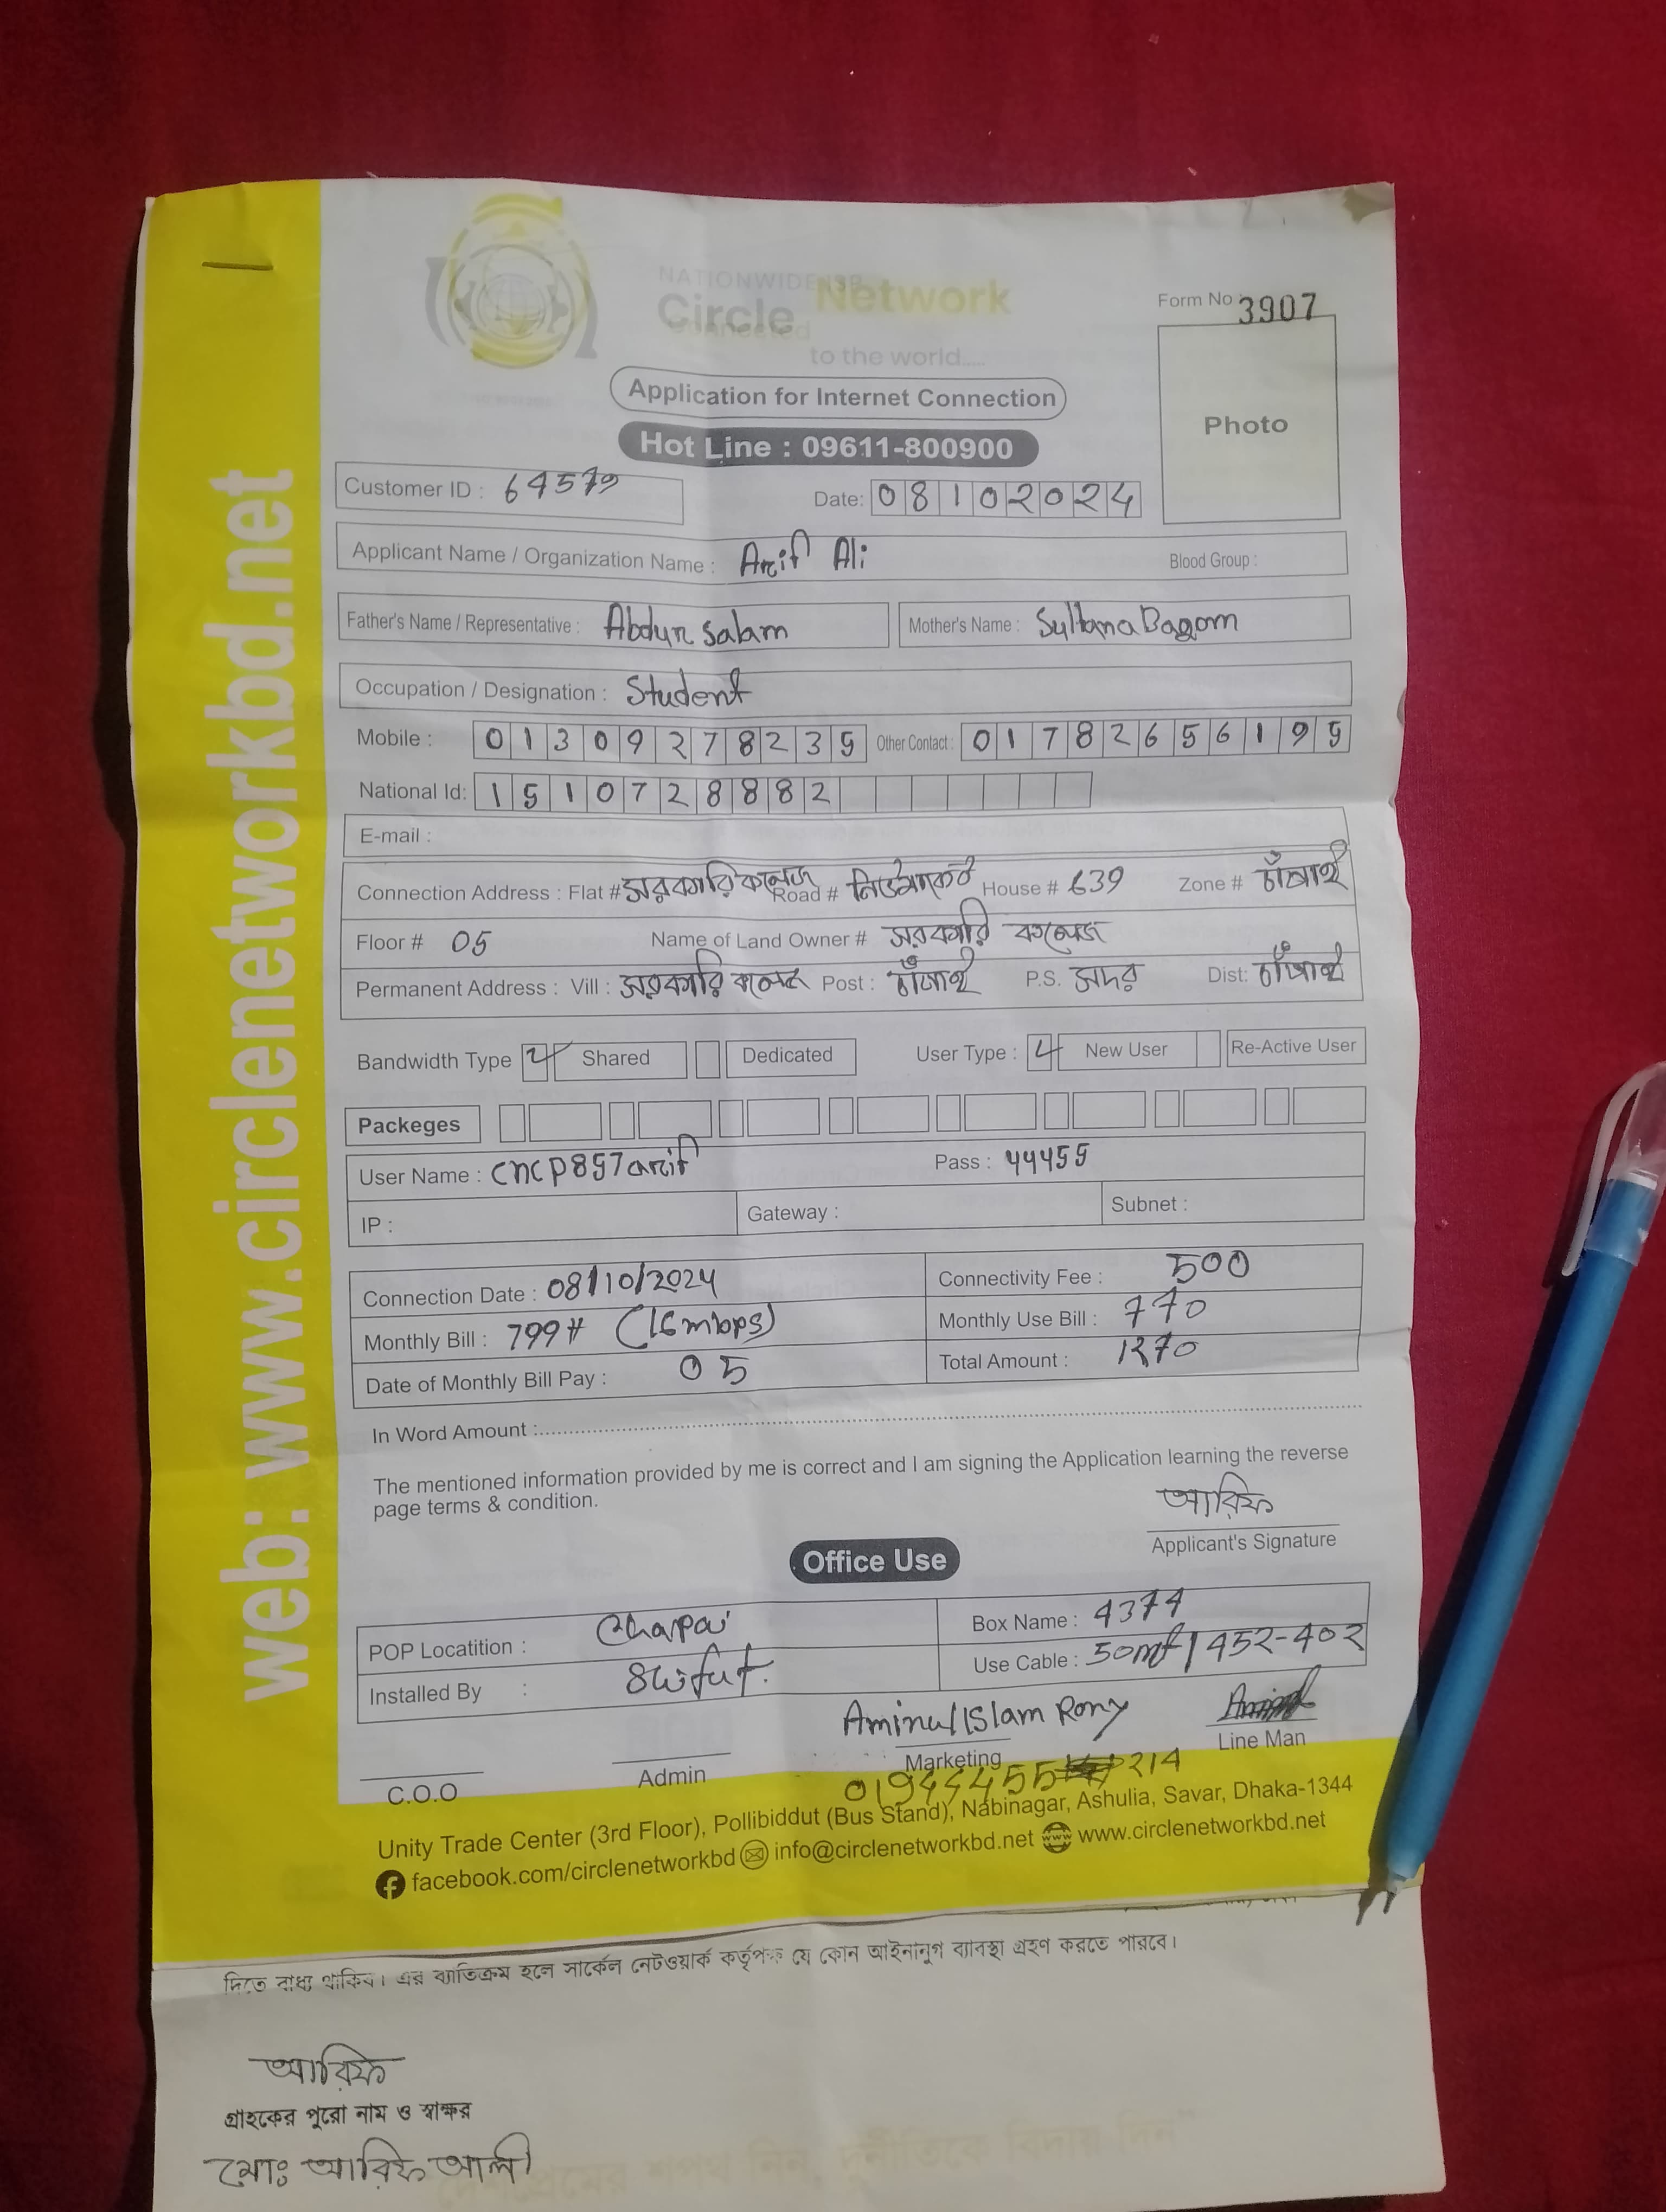 web: www.circlenetworkbd.net
NATIONWIDE ISP
Circle Network
Connected
to the world.....
Form No 3907
Application for Internet Connection
Photo
Hot Line : 09611-800900
Customer ID : 64579 Date: 08102024
Applicant Name / Organization Name : Arif Ali Blood Group :
Father's Name / Representative : Abdur Salam Mother's Name : Sultana Bagom
Occupation / Designation : Student
Mobile : 01309278235 Other Contact : 01782656195
National Id: 1510728882
E-mail :
Connection Address : Flat # সরকারি কলেজ Road # নিউমার্কেট House # 639 Zone # চাঁপাই
Floor # 05 Name of Land Owner # সরকারি কলেজ
Permanent Address : Vill : সরকারি কলেজ Post : চাঁপাই P.S. সদর Dist: চাঁপাই
Bandwidth Type Shared Dedicated User Type : New User Re-Active User
Packeges
User Name : cncp857arif Pass : 44455
IP : Gateway : Subnet :
Connection Date : 08/10/2024 Connectivity Fee : 500
Monthly Bill : 799# (16mbps) Monthly Use Bill : 770
Date of Monthly Bill Pay : 05 Total Amount : 1270
In Word Amount :
The mentioned information provided by me is correct and I am signing the Application learning the reverse
page terms & condition.
আরিফ
Applicant's Signature
Office Use
POP Locatition : Chapai Box Name : 4374
Installed By : Use Cable : 50mt / 452-402
Aminul Islam Rony
C.O.O Admin Marketing Line Man
214
Unity Trade Center (3rd Floor), Pollibiddut (Bus Stand), Nabinagar, Ashulia, Savar, Dhaka-1344
facebook.com/circlenetworkbd info@circlenetworkbd.net www.circlenetworkbd.net
দিতে বাধ্য থাকিব। এর ব্যতিক্রম হলে সার্কেল নেটওয়ার্ক কর্তৃপক্ষ যে কোন আইনানুগ ব্যাবস্থা গ্রহণ করতে পারবে।
আরিফ
গ্রাহকের পুরো নাম ও স্বাক্ষর
মোঃ আরিফ আলী